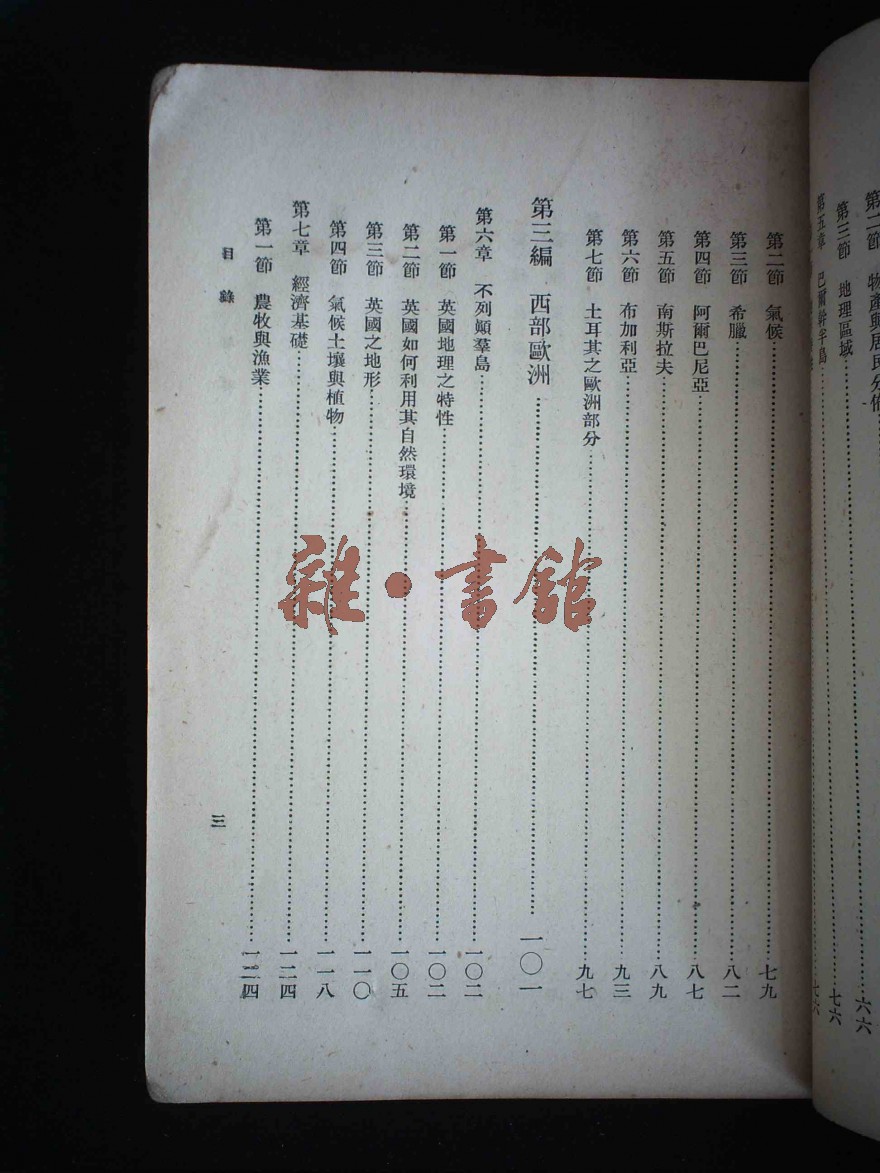 第二節 物產與居民分佈 六六
第三節 地理區域 七六
第五章 巴爾幹半島 七六
第二節 氣候 七九
第三節 希臘 八二
第四節 阿爾巴尼亞 八七
第五節 南斯拉夫 八九
第六節 布加利亞 九三
第七節 土耳其之歐洲部分 九七
第三編 西部歐洲 一〇一
第六章 不列顛羣島 一〇二
第一節 英國地理之特性 一〇二
第二節 英國如何利用其自然環境 一〇五
第三節 英國之地形 一一〇
第四節 氣候土壤與植物 一一八
第七章 經濟基礎 一二四
第一節 農牧與漁業 一二四
目錄 三
雜·書館